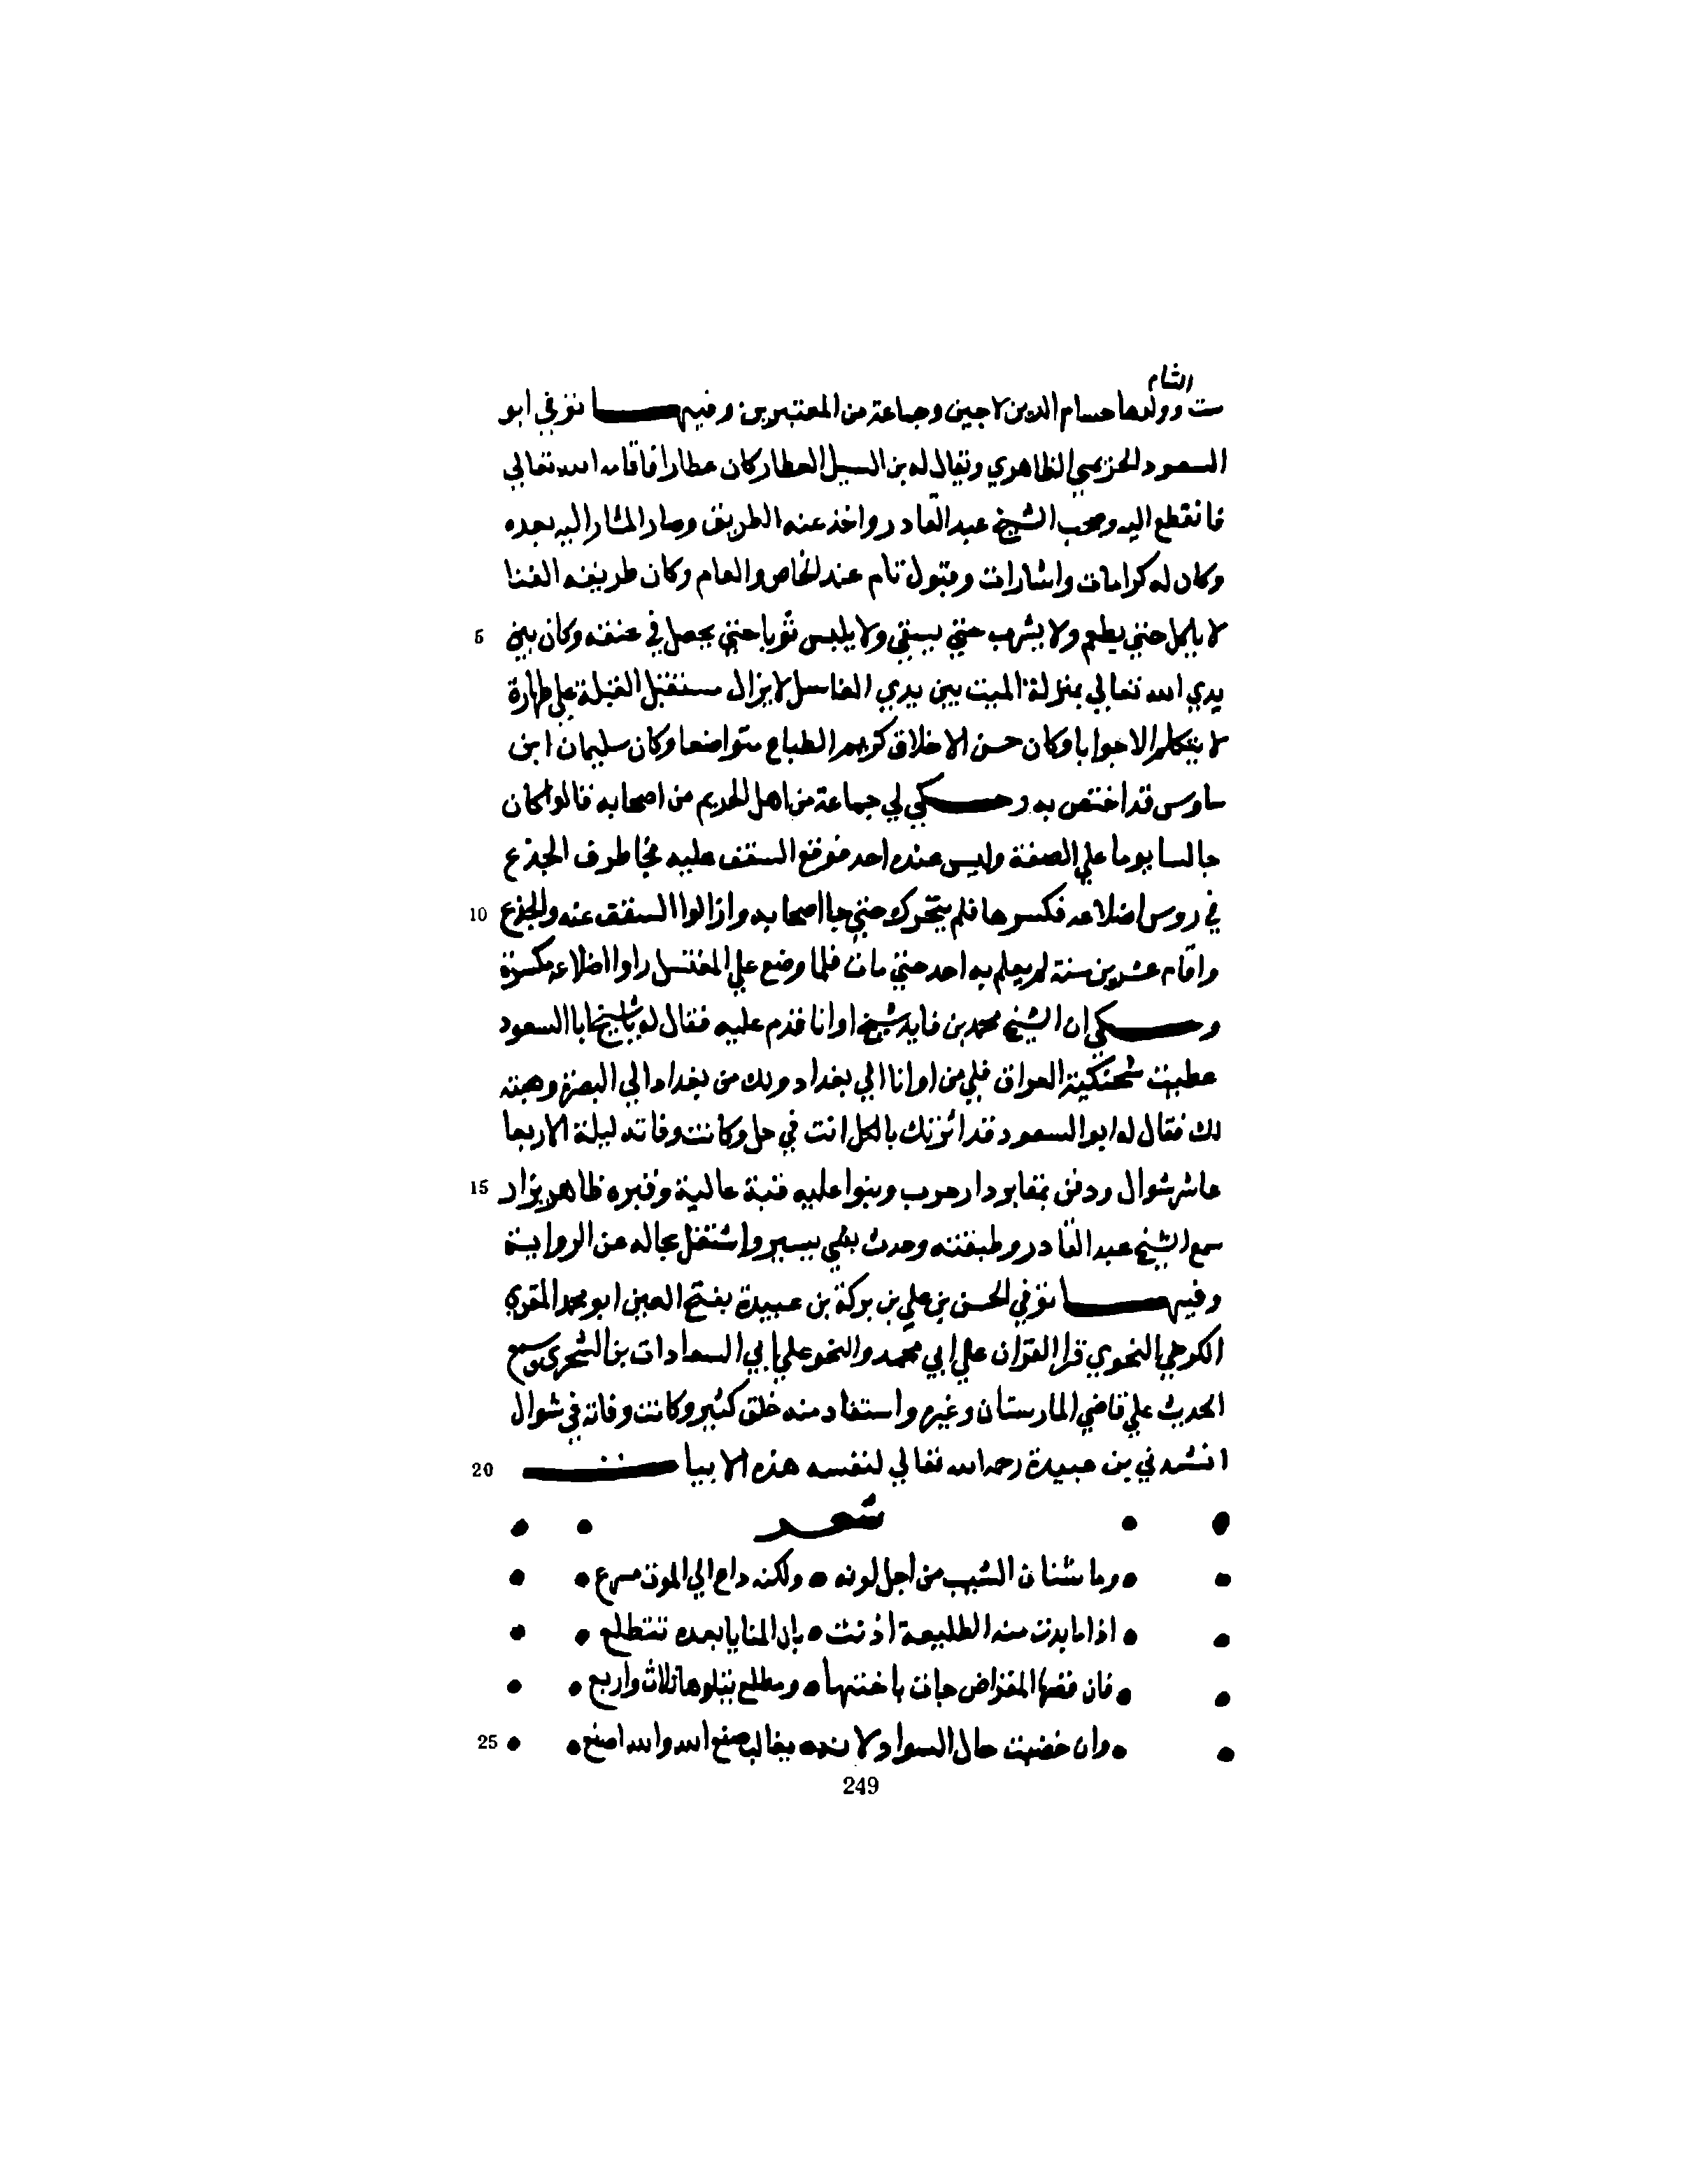 الشام
ست وولدها حسام الدين لاجين وجماعة من المعتبرين وفيها توفي ابو
السعود الحريمي الظاهري ويقال له بن السيل العطار كان عطارا فاقامه الله تعالي
فانقطع اليه وصحب الشيخ عبد القادر واخذ عنه الطريق وصار المشار اليه بعده
وكان له كرامات واشارات وقبول تام عند الخاص والعام وكان طريقه الفنا
لا ياكل حتي يطعم ولا يشرب حتي يسقي ولا يلبس ثوبا حتي يجعل في عنقه وكان بين 5
يدي الله تعالي بمنزلة الميت بين يدي الغاسل لا يزال مستقبل القبلة علي طهارة
لا يتكلم الا جوابا وكان حسن الاخلاق كريم الطباع متواضعا وكان سليمان ابن
ساوس قد اختص به وحكي لي جماعة من اهل الحريم من اصحابه قالوا كان
جالسا يوما علي الصفة وليس عنده احد فوقع السقف عليه فجا طرف الجذع
في روس اضلاعه فكسرها فلم يتحرك حتي جا اصحابه وازالوا السقف عنه والجذع 10
واقام عشرين سنة لم يعلم به احد حتي مات فلما وضع علي المغتسل راوا اضلاعه مكسرة
وحكي ان الشيخ محمد بن فايد شيخ اوانا قدم عليه فقال له يا شيخ ابا السعود
عطيت شحنكية العراق فلي من اوانا الي بغداد ولك من بغداد الي البصرة وهبته
لك فقال له ابو السعود قد اثرتك بالكل انت في حل وكانت وفاته ليلة الاربعا
عاشر شوال ودفن بمقابر دار حرب وبنوا عليه قبة عالية وقبره ظاهر يزار 15
سمع الشيخ عبد القادر وطبقته وحدث بشي يسير واشتغل بحاله عن الرواية
وفيها توفي الحسن بن علي بن بركة بن عبيدة بفتح العين ابو محمد المقري
الكرخي النحوي قرا القران علي ابي محمد والنحو علي ابي السعادات بن الشجري وسمع
الحديث علي قاضي المارستان وغيره واستفاد منه خلق كثير وكانت وفاته في شوال
انشدني بن عبيدة رحمه الله تعالي لنفسه هذه الابيات 20
شعر
وما شنان الشيب من اجل لونه • ولكنه داع الي الموت مسرع
اذا ما بدت منه الطليعة اذنت • بان المنايا بعده تتطلع
فان قصها المقراض جات باختها • ومطلع يتلوها ثلاث واربع
وان خضبت حال السواد لانه يغالب صنع الله والله اصنع 25
249